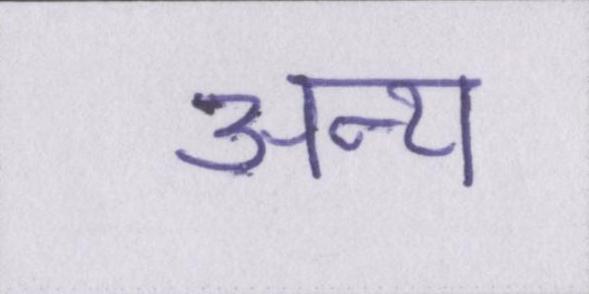 अन्य